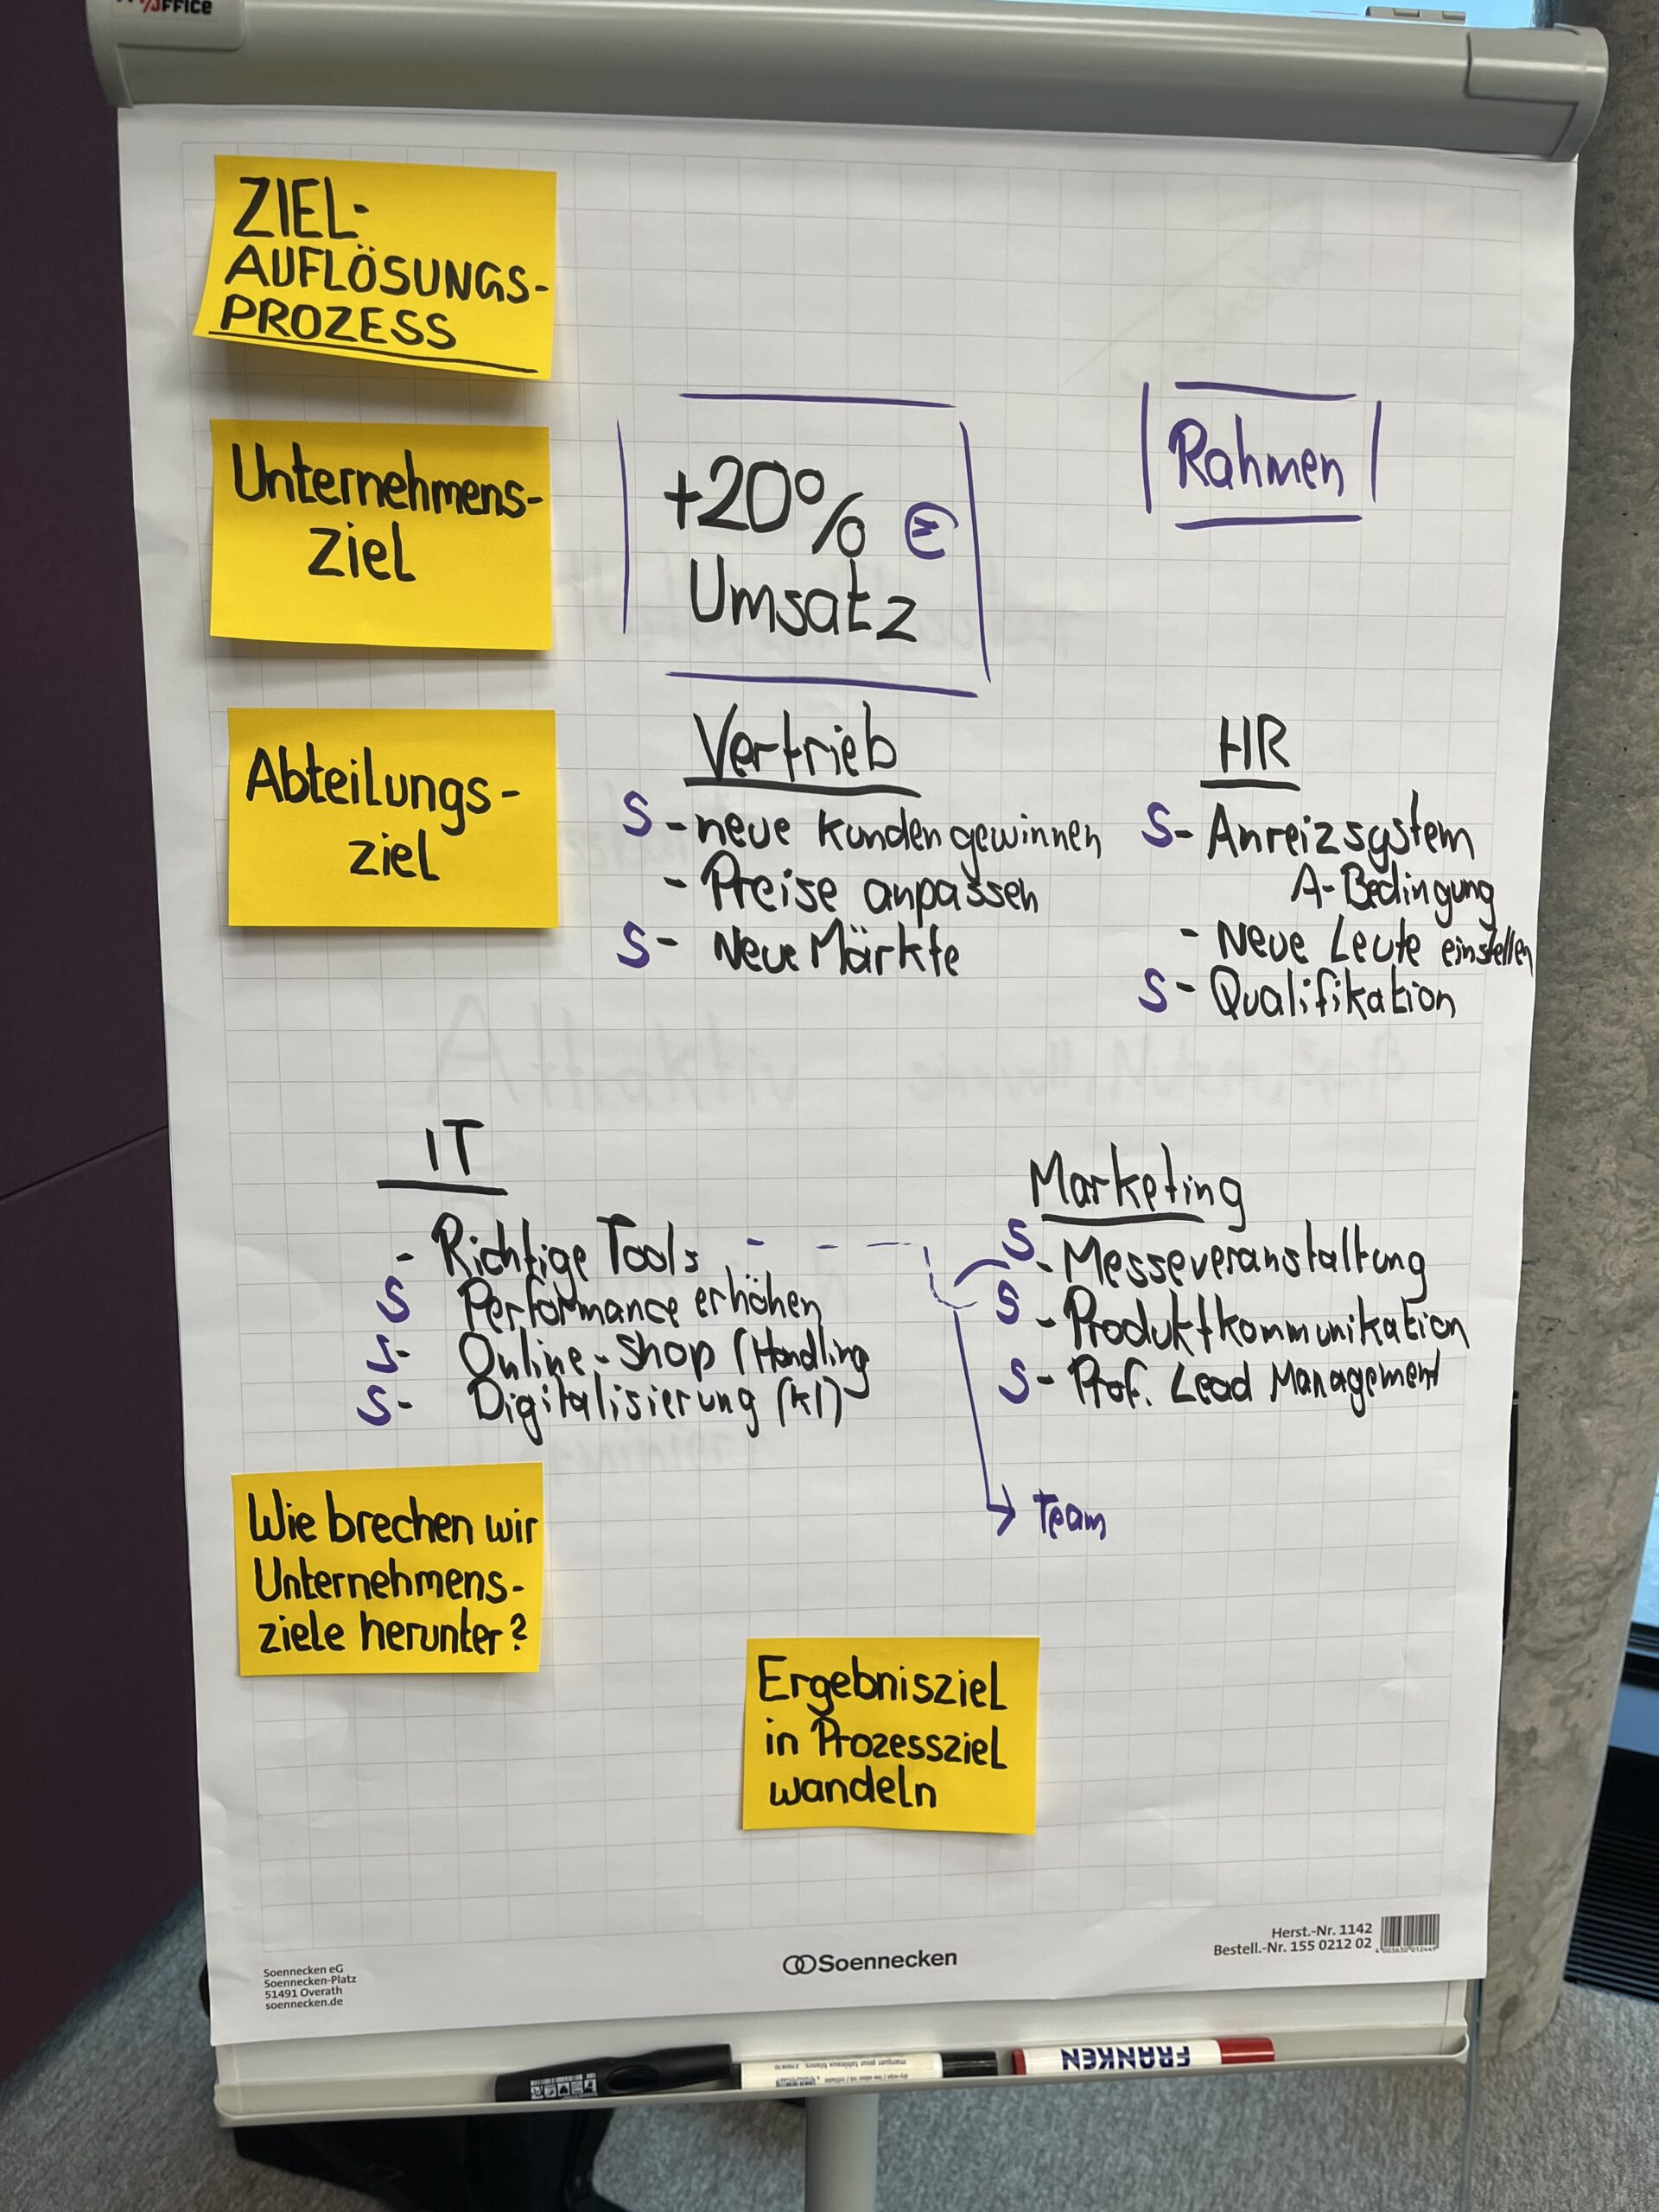 ZIEL-
AUFLÖSUNGS-
PROZESS
Unternehmens-
ziel
+20%
Umsatz
Rahmen
Abteilungs-
ziel
Vertrieb
S - neue Kunden gewinnen
- Preise anpassen
S - Neue Märkte
HR
S - Anreizsystem
A-Bedingung
- Neue Leute einstellen
S - Qualifikation
IT
- Richtige Tools
S Performance erhöhen
S - Online-Shop (Handling
S - Digitalisierung (KI)
Marketing
S - Messeveranstaltung
S - Produktkommunikation
S - Prof. Lead Management
Team
Wie brechen wir
Unternehmens-
ziele herunter?
Ergebnisziel
in Prozessziel
wandeln
Soennecken eG
Soennecken-Platz
51491 Overath
soennecken.de
Soennecken
Herst.-Nr. 1142
Bestell.-Nr. 155 0212 02
FRANKEN